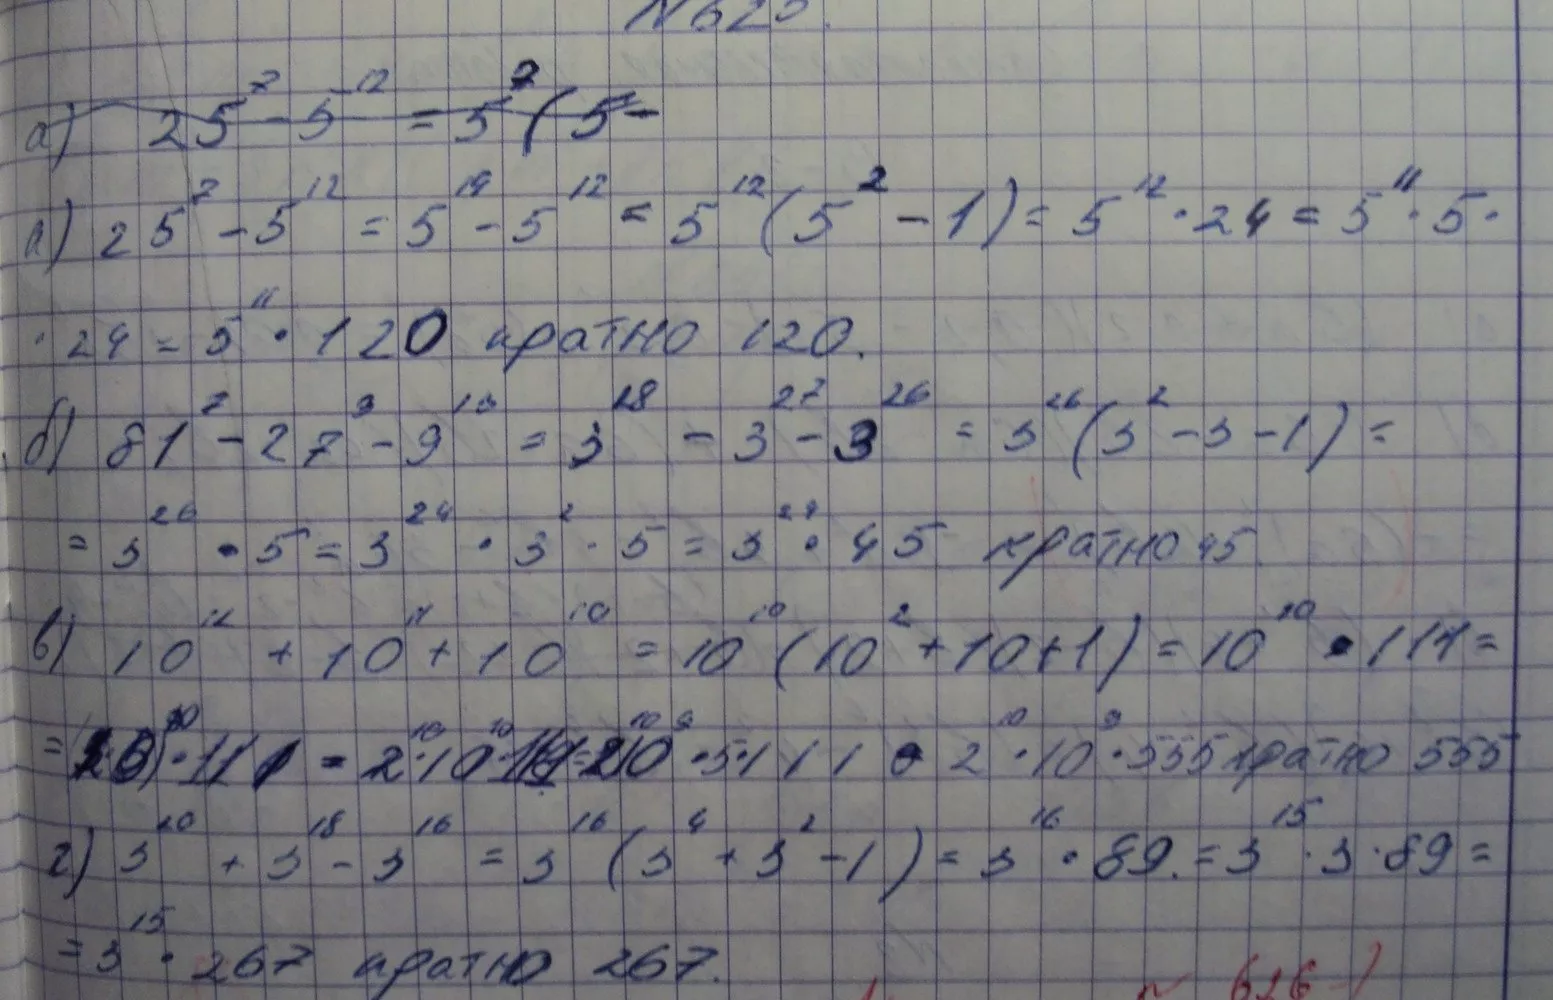 N 625.
а) 25⁷ - 5¹² = 5² (5 -
а) 25⁷ - 5¹² = 5¹⁴ - 5¹² = 5¹² (5² - 1) = 5¹² · 24 = 5¹¹ · 5 ·
· 24 = 5¹¹ · 120 кратно 120.
б) 81⁷ - 27⁹ - 9¹³ = 3²⁸ - 3²⁷ - 3²⁶ = 3²⁶ (3² - 3 - 1) =
= 3²⁶ · 5 = 3²⁴ · 3² · 5 = 3²⁴ · 45 кратно 45.
в) 10¹² + 10¹¹ + 10¹⁰ = 10¹⁰ (10² + 10 + 1) = 10¹⁰ · 111 =
· 111 = 2 · 10⁹ · 5 · 111 = 2 · 10⁹ · 555 кратно 555
г) 3²⁰ + 3¹⁸ - 3¹⁶ = 3¹⁶ (3⁴ + 3² - 1) = 3¹⁶ · 89. = 3¹⁵ · 3 · 89 =
= 3¹⁵ · 267 кратно 267.
626